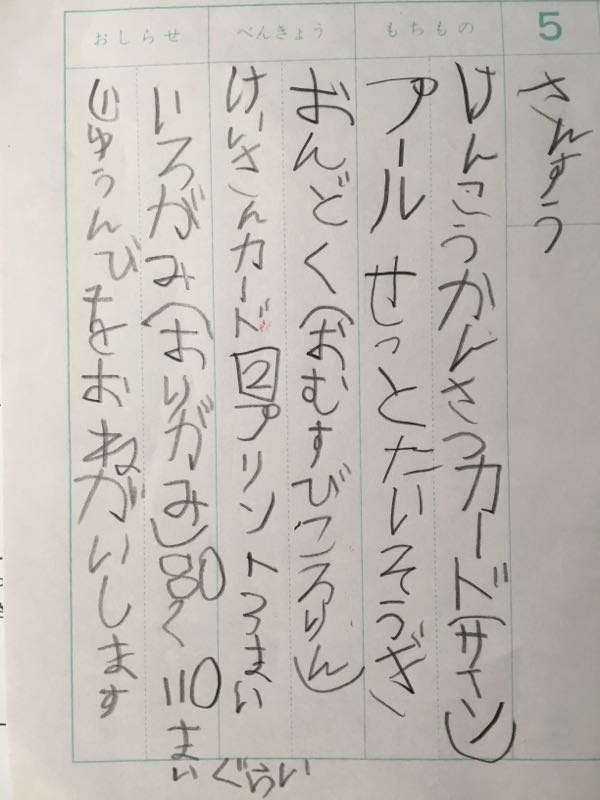 5
さんすう
もちもの
けんこうかんさつカード(サイン)
プール せっとたいそうぎ
べんきょう
おんどく(おむすびころりん)
けいさんカード 2 プリント3まい
おしらせ
いろがみ(おりがみ)80く110まいぐらい
じゅうんびをおねがいします